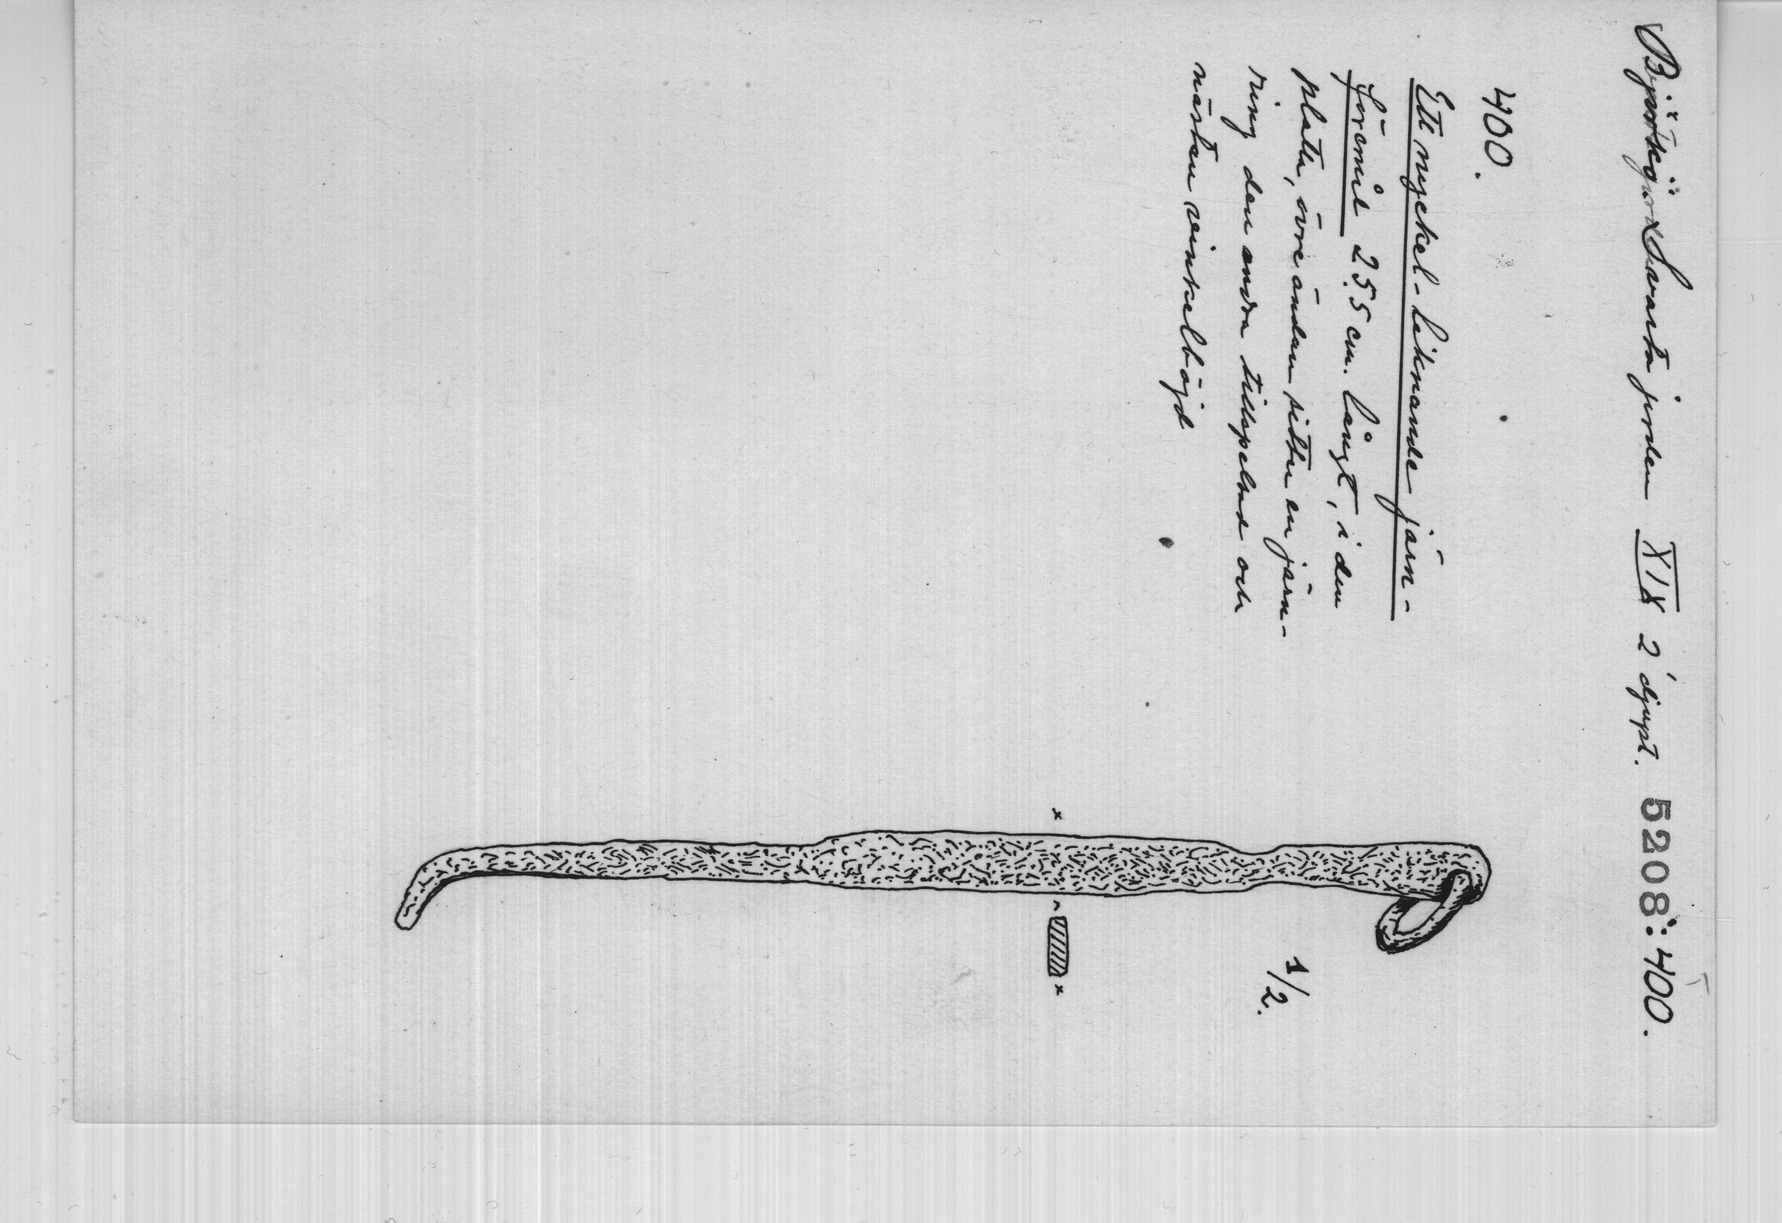 Björkö Svarta jorden XIX 2' djupt. 5208:400.
400.
Ett nyckel-liknande järn-
föremål 25.5 cm. långt, i den
platta, övre ändan sitter en järn-
ring den andra tillspetsad och
nästan vinkelböjd
1/2.